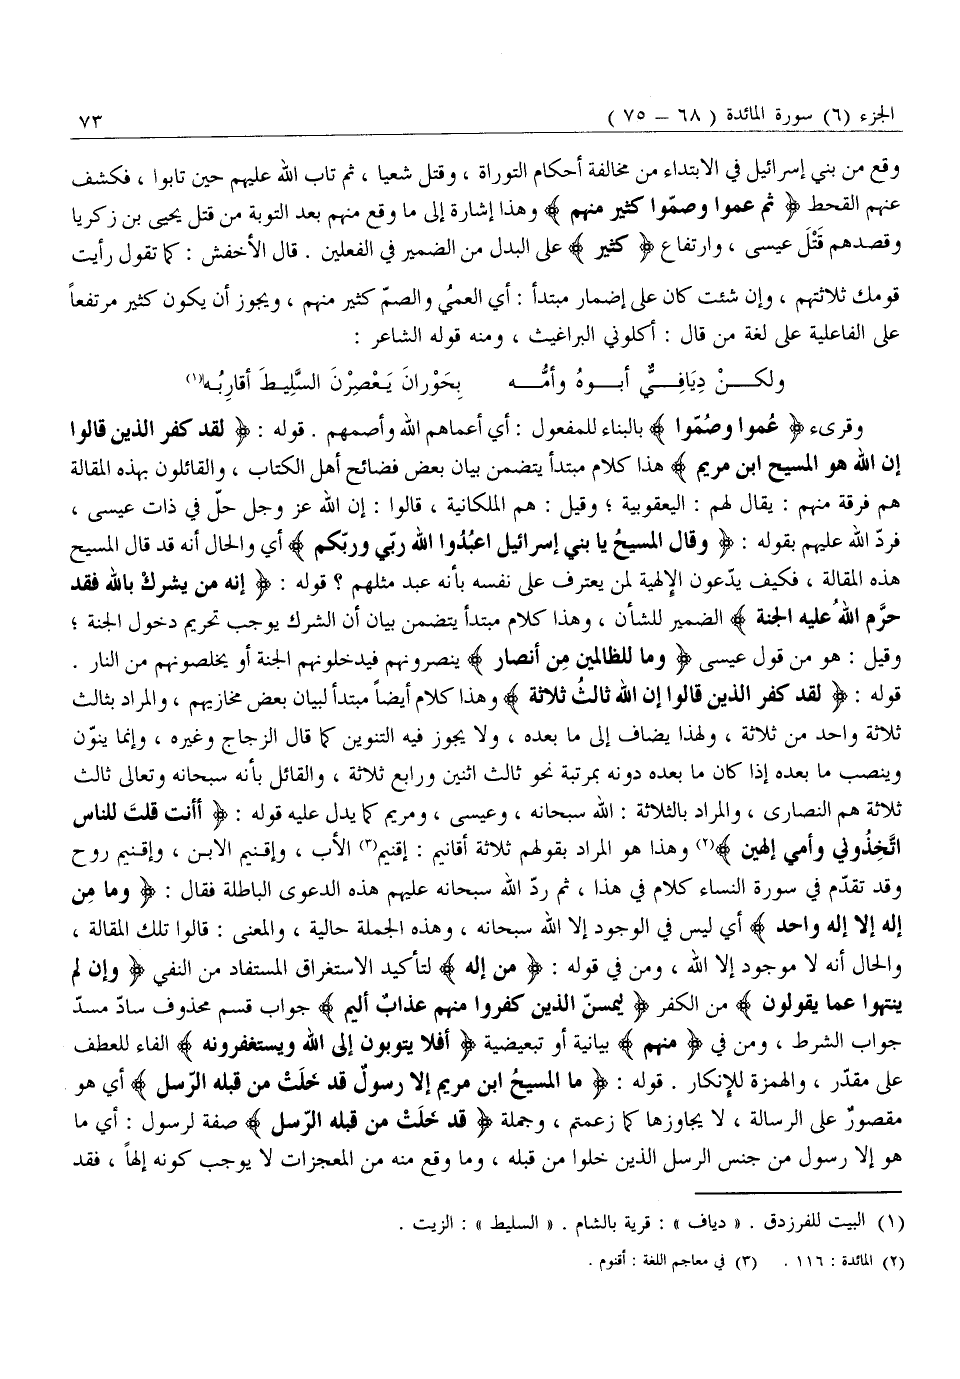 الجزء (٦) سورة المائدة ( ٦٨ – ٧٥ ) ٧٣
وقع من بني إسرائيل في الابتداء من مخالفة أحكام التوراة ، وقتل شعيا ، ثم تاب الله عليهم حين تابوا ، فكشف
عنهم القحط ﴿ ثم عموا وصمّوا كثير منهم ﴾ وهذا إشارة إلى ما وقع منهم بعد التوبة من قتل يحيى بن زكريا
وقصدهم قَتْلَ عيسى ، وارتفاع ﴿ كثير ﴾ على البدل من الضمير في الفعلين . قال الأخفش : كما تقول رأيت
قومك ثلاثتهم ، وإن شئت كان على إضمار مبتدأ : أي العميُ والصمّ كثير منهم ، ويجوز أن يكون كثير مرتفعاً
على الفاعلية على لغة من قال : أكلوني البراغيث ، ومنه قوله الشاعر :
ولكـــنْ دِيَافِـــيٌّ أبـــوهُ وأمُّـــه بِحَوْرانَ يَـعْصِرْنَ السَّلِيطَ أقارِبُـه(١)
وقرىء ﴿ عُموا وصُمّوا ﴾ بالبناء للمفعول : أي أعماهم الله وأصمهم . قوله : ﴿ لقد كفر الذين قالوا
إن الله هو المسيح ابن مريم ﴾ هذا كلام مبتدأ يتضمن بيان بعض فضائح أهل الكتاب ، والقائلون بهذه المقالة
هم فرقة منهم : يقال لهم : اليعقوبية ؛ وقيل : هم الملكانية ، قالوا : إن الله عز وجل حلّ في ذات عيسى ،
فردّ الله عليهم بقوله : ﴿ وقال المسيحُ يا بني إسرائيل اعبُدُوا الله ربّي وربّكم ﴾ أي والحال أنه قد قال المسيح
هذه المقالة ، فكيف يدّعون الإلهية لمن يعترف على نفسه بأنه عبد مثلهم ؟ قوله : ﴿ إنه من يشركْ بالله فقد
حرَّم اللهُ عليه الجنة ﴾ الضمير للشأن ، وهذا كلام مبتدأ يتضمن بيان أن الشرك يوجب تحريم دخول الجنة ؛
وقيل : هو من قول عيسى ﴿ وما للظالمين مِن أنصار ﴾ ينصرونهم فيدخلونهم الجنة أو يخلصونهم من النار .
قوله : ﴿ لقد كفر الذين قالوا إن الله ثالثُ ثلاثة ﴾ وهذا كلام أيضاً مبتدأ لبيان بعض مخازيهم ، والمراد بثالث
ثلاثة واحد من ثلاثة ، ولهذا يضاف إلى ما بعده ، ولا يجوز فيه التنوين كما قال الزجاج وغيره ، وإنما ينوّن
وينصب ما بعده إذا كان ما بعده دونه بمرتبة نحو ثالث اثنين ورابع ثلاثة ، والقائل بأنه سبحانه وتعالى ثالث
ثلاثة هم النصارى ، والمراد بالثلاثة : الله سبحانه ، وعيسى ، ومريم كما يدل عليه قوله : ﴿ أأنت قلتَ للناس
اتَّخِذُوني وأمي إلهين ﴾(٢) وهذا هو المراد بقولهم ثلاثة أقانيم : إقنيم(٣) الأب ، وإقـنيم الابـن ، وإقـنيم روح
وقد تقدّم في سورة النساء كلام في هذا ، ثم ردّ الله سبحانه عليهم هذه الدعوى الباطلة فقال : ﴿ وما مِن
إله إلا إله واحد ﴾ أي ليس في الوجود إلا الله سبحانه ، وهذه الجملة حالية ، والمعنى : قالوا تلك المقالة ،
والحال أنه لا موجود إلا الله ، ومن في قوله : ﴿ من إله ﴾ لتأكيد الاستغراق المستفاد من النفي ﴿ وإن لم
ينتهوا عما يقولون ﴾ من الكفر ﴿ ليمسنّ الذين كفروا منهم عذابٌ أليم ﴾ جواب قسم محذوف سادّ مسدّ
جواب الشرط ، ومن في ﴿ منهم ﴾ بيانية أو تبعيضية ﴿ أفلا يتوبون إلى الله ويستغفرونه ﴾ الفاء للعطف
على مقدّر ، والهمزة للإنكار . قوله : ﴿ ما المسيحُ ابن مريم إلا رسولٌ قد خلَتْ من قبله الرّسل ﴾ أي هو
مقصورٌ على الرسالة ، لا يجاوزها كما زعمتم ، وجملة ﴿ قد خلَتْ من قبله الرّسل ﴾ صفة لرسول : أي ما
هو إلا رسول من جنس الرسل الذين خلوا من قبله ، وما وقع منه من المعجزات لا يوجب كونه إلهاً ، فقد
(١) البيت للفرزدق . « دياف » : قرية بالشام . « السليط » : الزيت .
(٢) المائدة : ١١٦ . (٣) في معاجم اللغة : أقنوم .